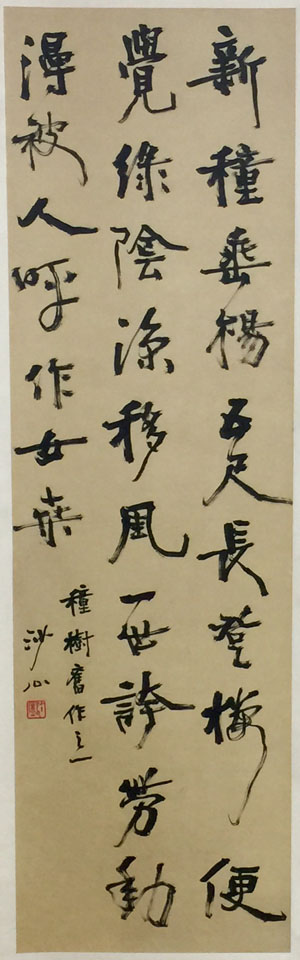 新種垂楊五尺長登樓便
覺綠陰涼移風一世誇勞動
漫被人呼作女桑
種樹舊作之一
沙